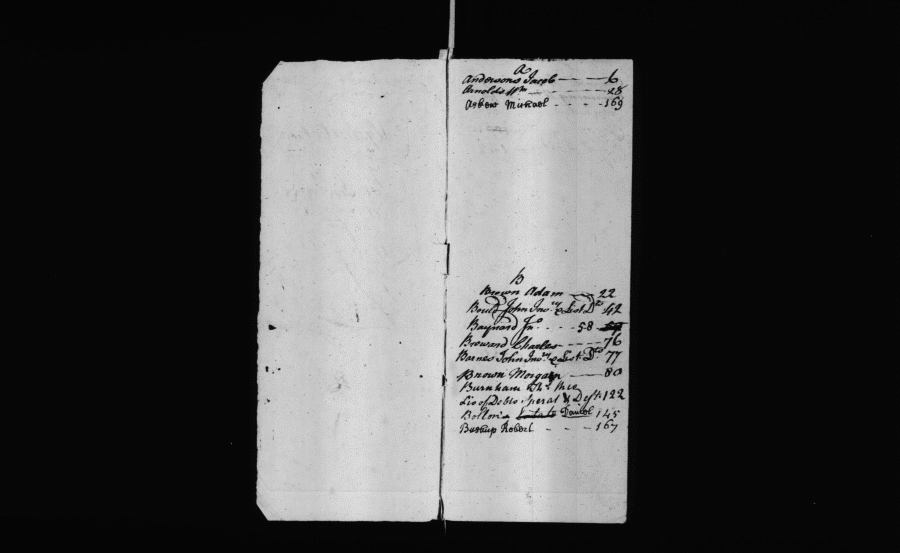 A
Andersons Jacob — 6
Arnolds Wm — 28
Askew Michael - - - 169
B
Brown Adam — 22
John Invry & List Ds 42
Baynard Jno - - - 58
Broward Charles - - - 76
Barnes John Invry & List Ds 77
Brown Morgan — 80
Burnham
Lis of Debts Sperat & Desp 122
Daniel 145
Robert - - - 167